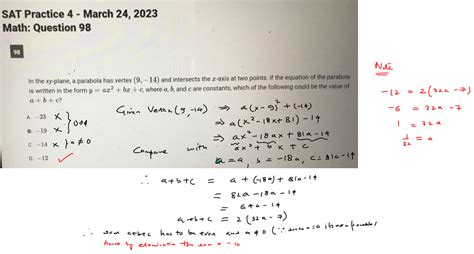 SAT Practice 4 - March 24, 2023
Math: Question 98
98
In the xy-plane, a parabola has vertex (9, −14) and intersects the x-axis at two points. If the equation of the parabola
is written in the form y = ax² + bx + c, where a, b, and c are constants, which of the following could be the value of
a + b + c?
A. −23 x
B. −19 x } odd
C. −14 x } a≠0
D. −12 ✓
Given Vertex (9, -14) ⇒ a(x-9)² + (-14)
⇒ a(x² - 18x + 81) - 14
⇒ ax² - 18ax + 81a - 14
Compare with ax² + bx + c
a = a, b = -18a, c = 81a - 14
∴ a+b+c = a + (-18a) + 81a - 14
= 82a - 18a - 14
= 64a - 14
a+b+c = 2 (32a - 7)
∴ a+b+c has to be even and a ≠ 0 (∵ a=0 is not a parabola)
hence by elimination the sum = -12
Note
-12 = 2(32a - 7)
-6 = 32a - 7
1 = 32a
1/32 = a